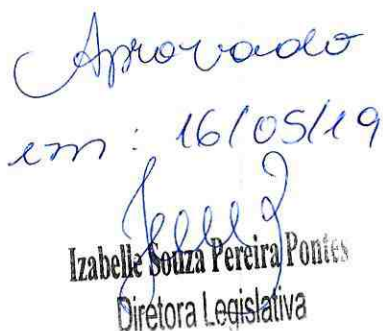 Aprovado
em: 16/05/19
Izabelle Souza Pereira Pontes
Diretora Legislativa